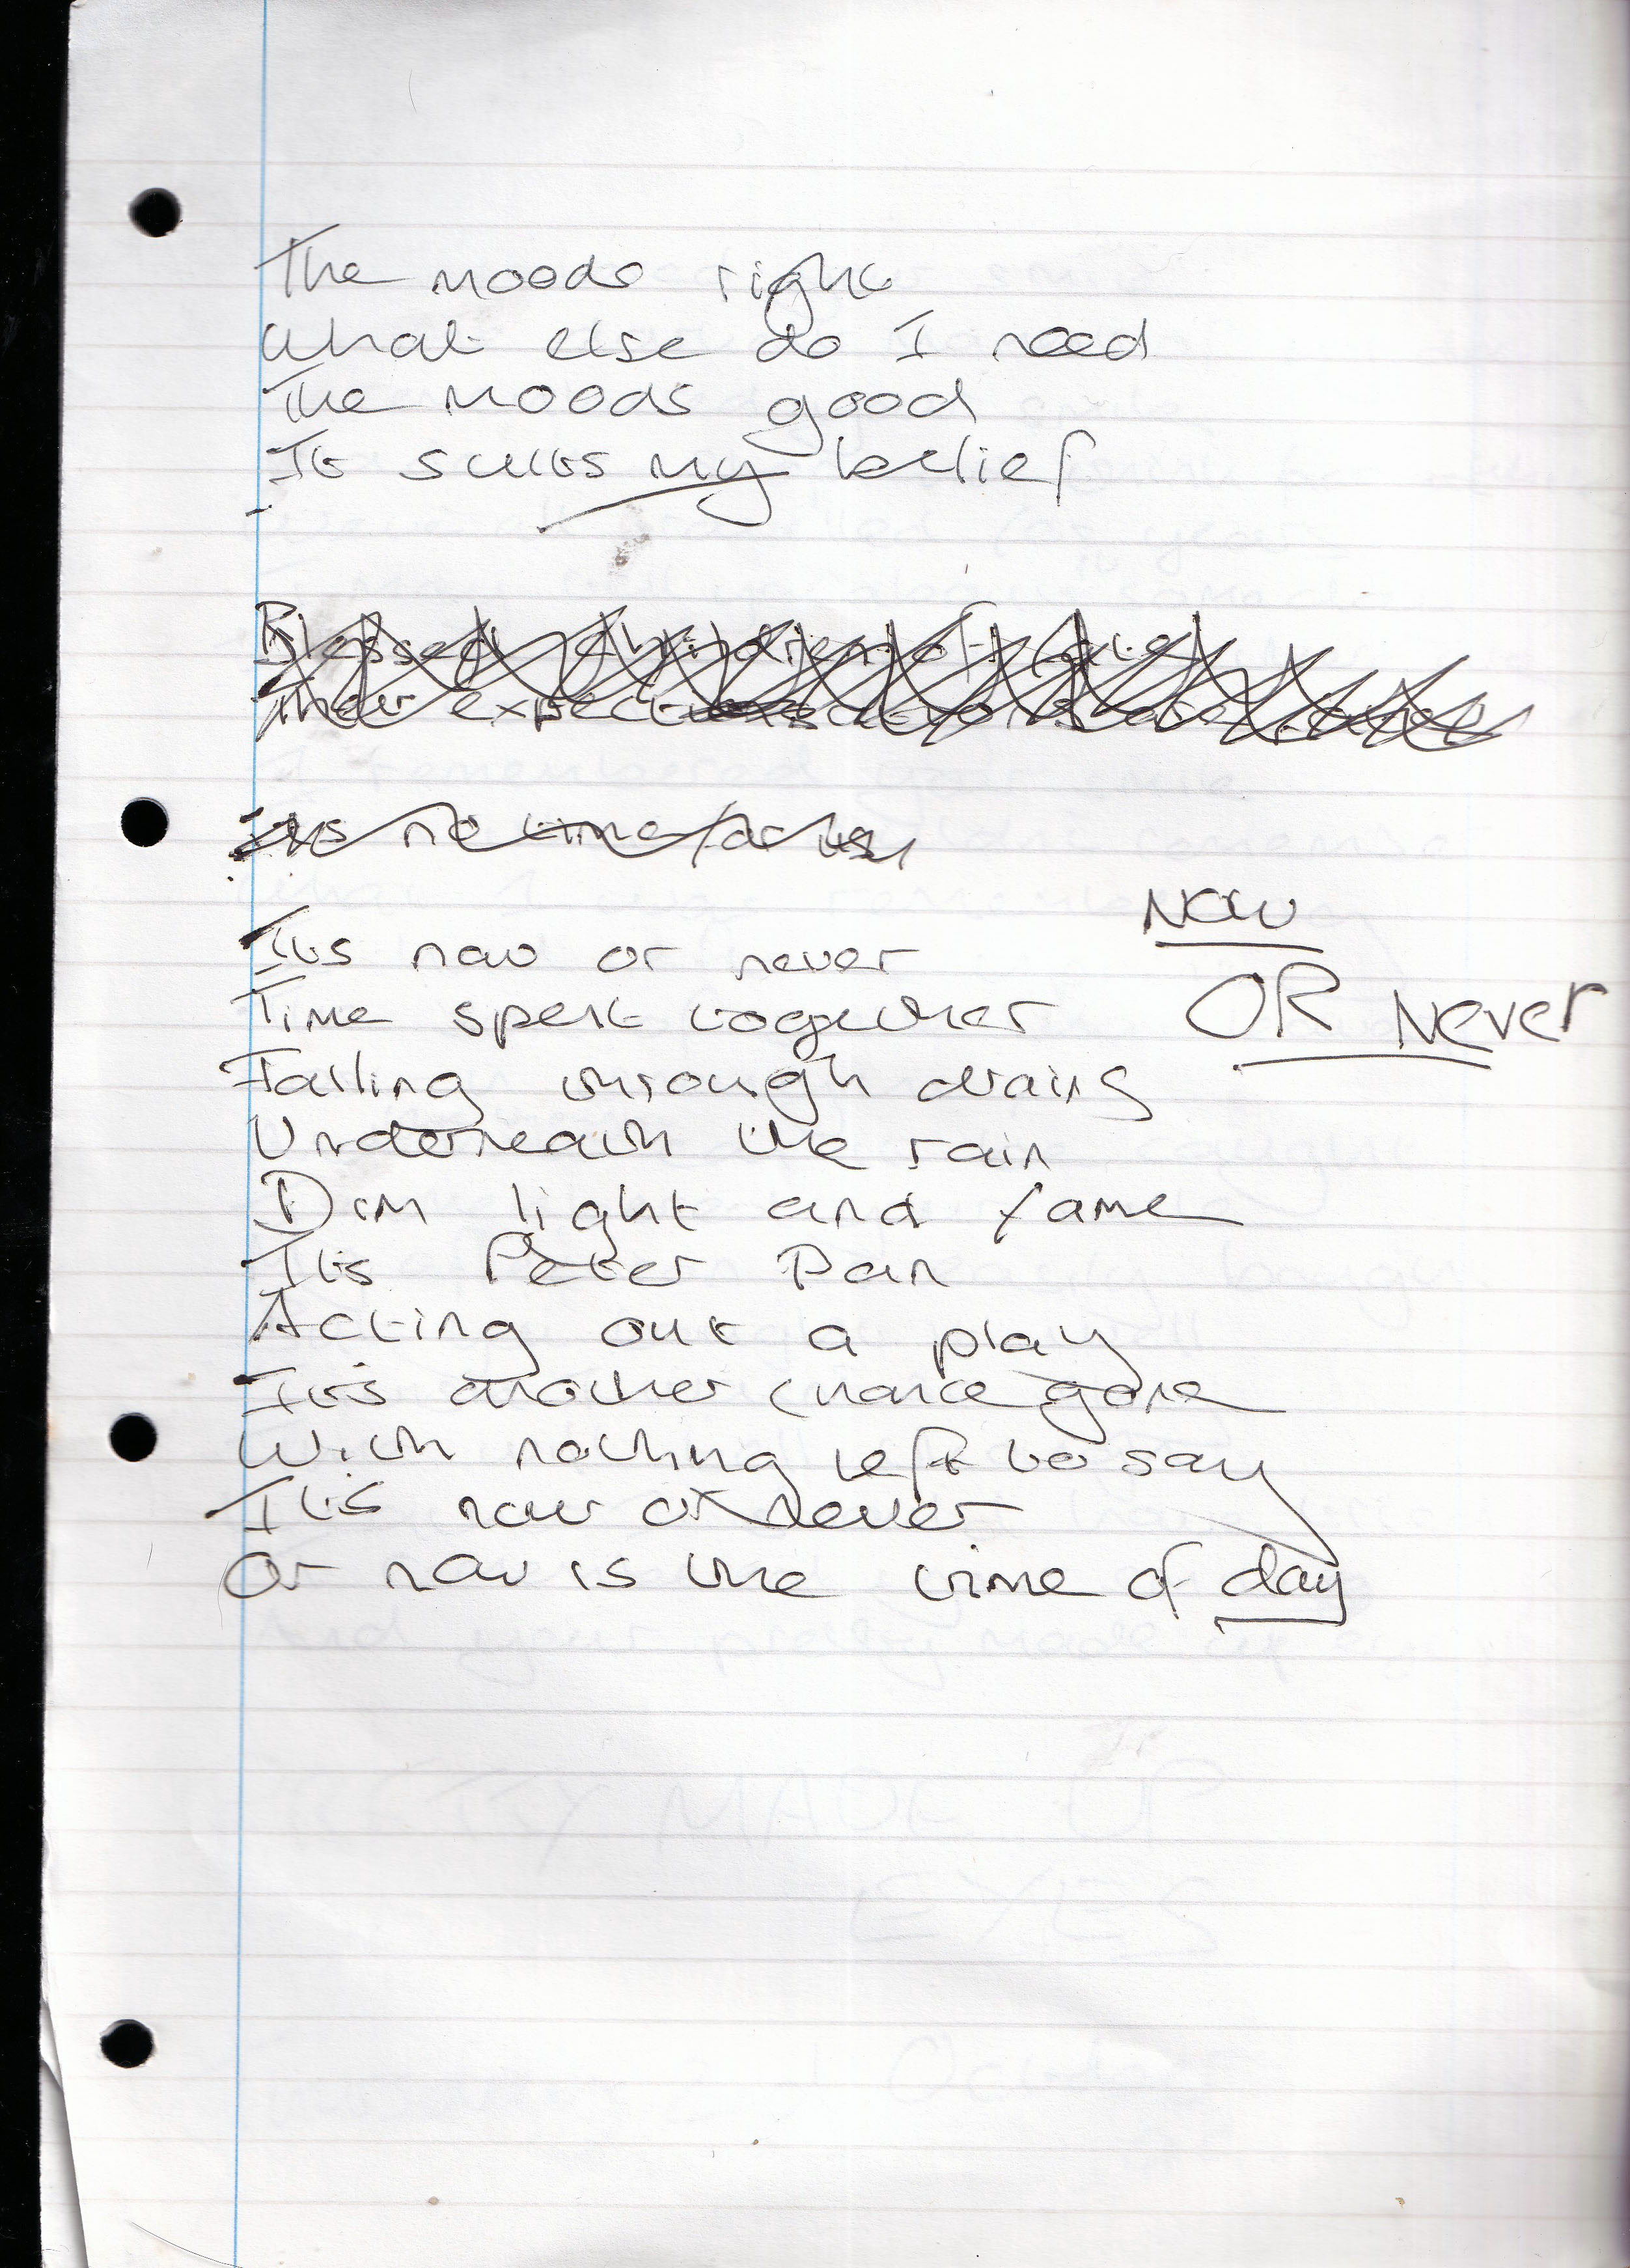 The moods right
What else do I need
The moods good
It suits my belief
Blessed children of fate
Their
Its no time for
NOW
Its now or never
OR Never
Time spent together
Falling through drains
Underneath the rain
Dim light and fame
Its Peter Pan
Acting out a play
Its another chance gone
With nothing left to say
Its now or never
Or now is the time of day